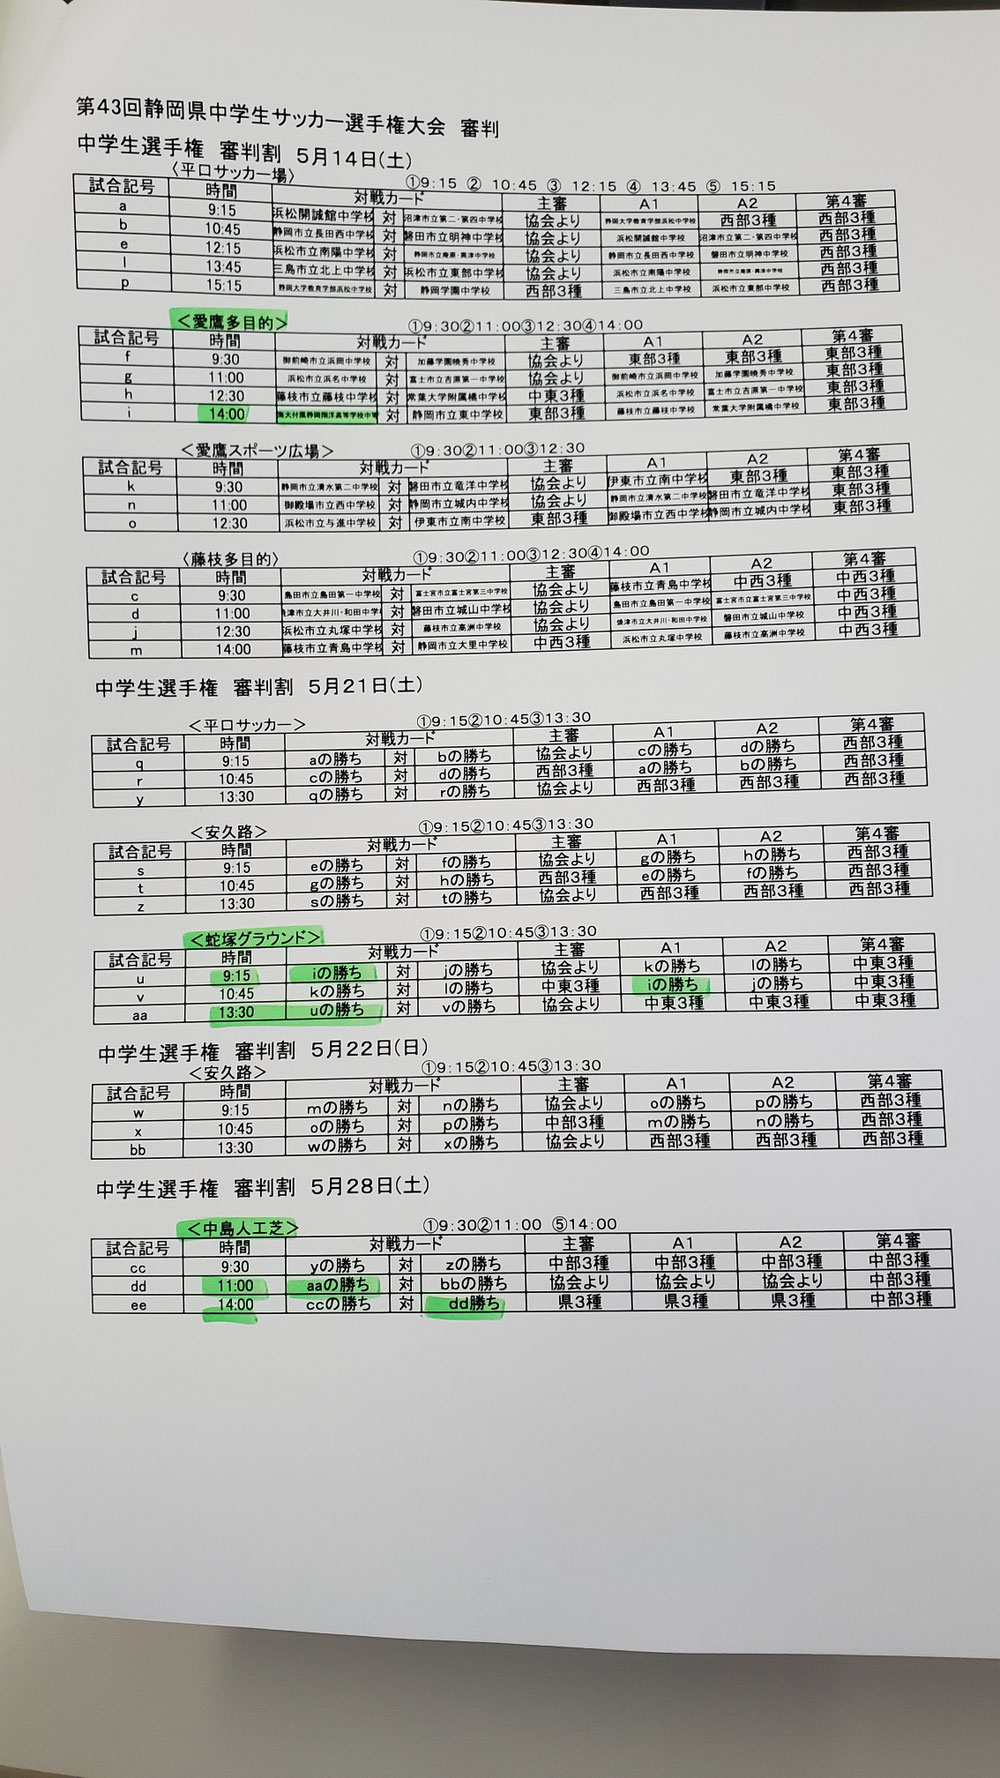 第43回静岡県中学生サッカー選手権大会 審判
中学生選手権 審判割 5月14日(土)
〈平口サッカー場〉 ①9:15 ② 10:45 ③ 12:15 ④ 13:45 ⑤ 15:15
試合記号 時間 対戦カード 主審 A1 A2 第4審
a 9:15 浜松開誠館中学校 対 沼津市立第二・第四中学校 協会より 静岡大学教育学部浜松中学校 西部3種 西部3種
b 10:45 静岡市立長田西中学校 対 磐田市立明神中学校 協会より 浜松開誠館中学校 沼津市立第二・第四中学校 西部3種
e 12:15 浜松市立南陽中学校 対 静岡市立庵原・興津中学校 協会より 静岡市立長田西中学校 磐田市立明神中学校 西部3種
l 13:45 三島市立北上中学校 対 浜松市立東部中学校 協会より 浜松市立南陽中学校 静岡市立庵原・興津中学校 西部3種
p 15:15 静岡大学教育学部浜松中学校 対 静岡学園中学校 西部3種 三島市立北上中学校 浜松市立東部中学校 西部3種
＜愛鷹多目的＞ ①9:30②11:00③12:30④14:00
試合記号 時間 対戦カード 主審 A1 A2 第4審
f 9:30 御前崎市立浜岡中学校 対 加藤学園暁秀中学校 協会より 東部3種 東部3種 東部3種
g 11:00 浜松市立浜名中学校 対 富士市立吉原第一中学校 協会より 御前崎市立浜岡中学校 加藤学園暁秀中学校 東部3種
h 12:30 藤枝市立藤枝中学校 対 常葉大学附属橘中学校 中東3種 浜松市立浜名中学校 富士市立吉原第一中学校 東部3種
i 14:00 海大付属静岡翔洋高等学校中等 対 静岡市立東中学校 東部3種 藤枝市立藤枝中学校 常葉大学附属橘中学校 東部3種
＜愛鷹スポーツ広場＞ ①9:30②11:00③12:30
試合記号 時間 対戦カード 主審 A1 A2 第4審
k 9:30 静岡市立清水第二中学校 対 磐田市立竜洋中学校 協会より 伊東市立南中学校 東部3種 東部3種
n 11:00 御殿場市立西中学校 対 静岡市立城内中学校 協会より 静岡市立清水第二中学校 磐田市立竜洋中学校 東部3種
o 12:30 浜松市立与進中学校 対 伊東市立南中学校 東部3種 御殿場市立西中学校 静岡市立城内中学校 東部3種
〈藤枝多目的〉 ①9:30②11:00③12:30④14:00
試合記号 時間 対戦カード 主審 A1 A2 第4審
c 9:30 島田市立島田第一中学校 対 富士宮市立富士宮第三中学校 協会より 藤枝市立青島中学校 中西3種 中西3種
d 11:00 津市立大井川・和田中学 対 磐田市立城山中学校 協会より 島田市立島田第一中学校 富士宮市立富士宮第三中学校 中西3種
j 12:30 浜松市立丸塚中学校 対 藤枝市立高洲中学校 協会より 焼津市立大井川・和田中学校 磐田市立城山中学校 中西3種
m 14:00 藤枝市立青島中学校 対 静岡市立大里中学校 中西3種 浜松市立丸塚中学校 藤枝市立高洲中学校 中西3種
中学生選手権 審判割 5月21日(土)
＜平口サッカー＞ ①9:15②10:45③13:30
試合記号 時間 対戦カード 主審 A1 A2 第4審
q 9:15 aの勝ち 対 bの勝ち 協会より cの勝ち dの勝ち 西部3種
r 10:45 cの勝ち 対 dの勝ち 西部3種 aの勝ち bの勝ち 西部3種
y 13:30 qの勝ち 対 rの勝ち 協会より 西部3種 西部3種 西部3種
＜安久路＞ ①9:15②10:45③13:30
試合記号 時間 対戦カード 主審 A1 A2 第4審
s 9:15 eの勝ち 対 fの勝ち 協会より gの勝ち hの勝ち 西部3種
t 10:45 gの勝ち 対 hの勝ち 西部3種 eの勝ち fの勝ち 西部3種
z 13:30 sの勝ち 対 tの勝ち 協会より 西部3種 西部3種 西部3種
＜蛇塚グラウンド＞ ①9:15②10:45③13:30
試合記号 時間 対戦カード 主審 A1 A2 第4審
u 9:15 iの勝ち 対 jの勝ち 協会より kの勝ち lの勝ち 中東3種
v 10:45 kの勝ち 対 lの勝ち 中東3種 iの勝ち jの勝ち 中東3種
aa 13:30 uの勝ち 対 vの勝ち 協会より 中東3種 中東3種 中東3種
中学生選手権 審判割 5月22日(日)
＜安久路＞ ①9:15②10:45③13:30
試合記号 時間 対戦カード 主審 A1 A2 第4審
w 9:15 mの勝ち 対 nの勝ち 協会より oの勝ち pの勝ち 西部3種
x 10:45 oの勝ち 対 pの勝ち 中部3種 mの勝ち nの勝ち 西部3種
bb 13:30 wの勝ち 対 xの勝ち 協会より 西部3種 西部3種 西部3種
中学生選手権 審判割 5月28日(土)
＜中島人工芝＞ ①9:30②11:00 ⑤14:00
試合記号 時間 対戦カード 主審 A1 A2 第4審
cc 9:30 yの勝ち 対 zの勝ち 中部3種 中部3種 中部3種 中部3種
dd 11:00 aaの勝ち 対 bbの勝ち 協会より 協会より 協会より 中部3種
ee 14:00 ccの勝ち 対 dd勝ち 県3種 県3種 県3種 中部3種